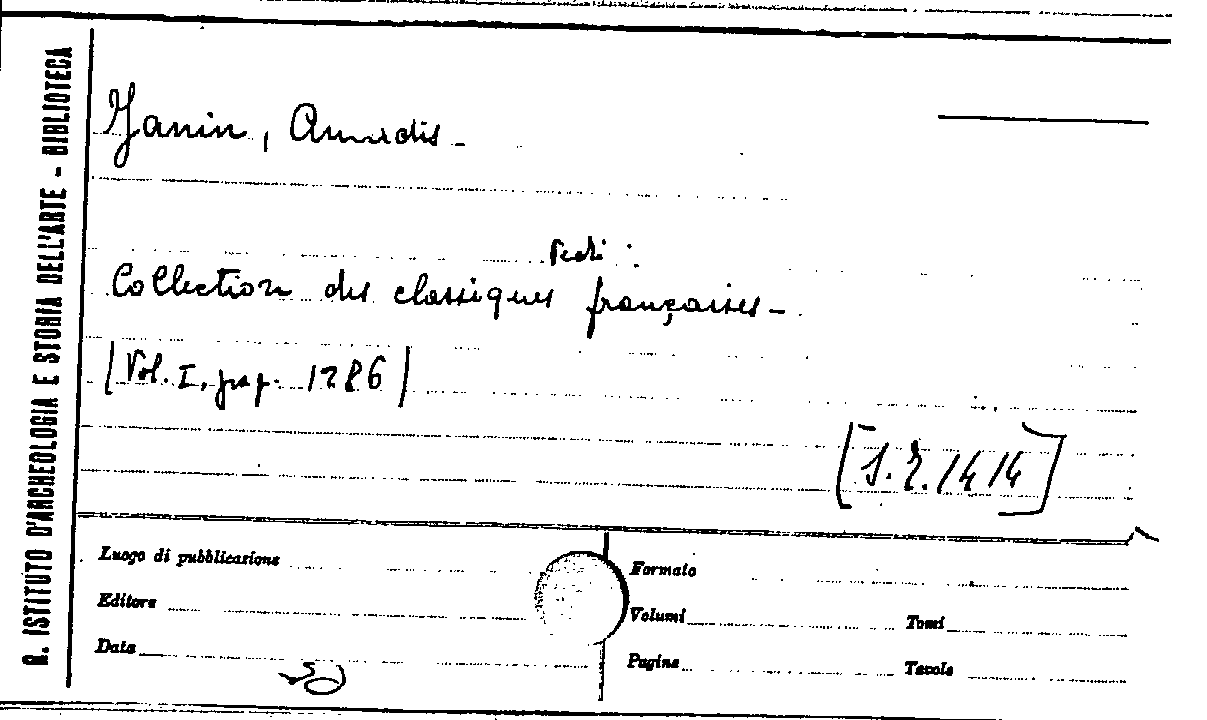 R. ISTITUTO D'ARCHEOLOGIA E STORIA DELL'ARTE - BIBLIOTECA
Janin, Amedis -
Vedi :
Collection des classiques françaises -
(Vol. I, pag. 1286)
[S.R. 14 14]
Luogo di pubblicazione
Formato
Editore
Volumi Tomi
Data
Pagine Tavole